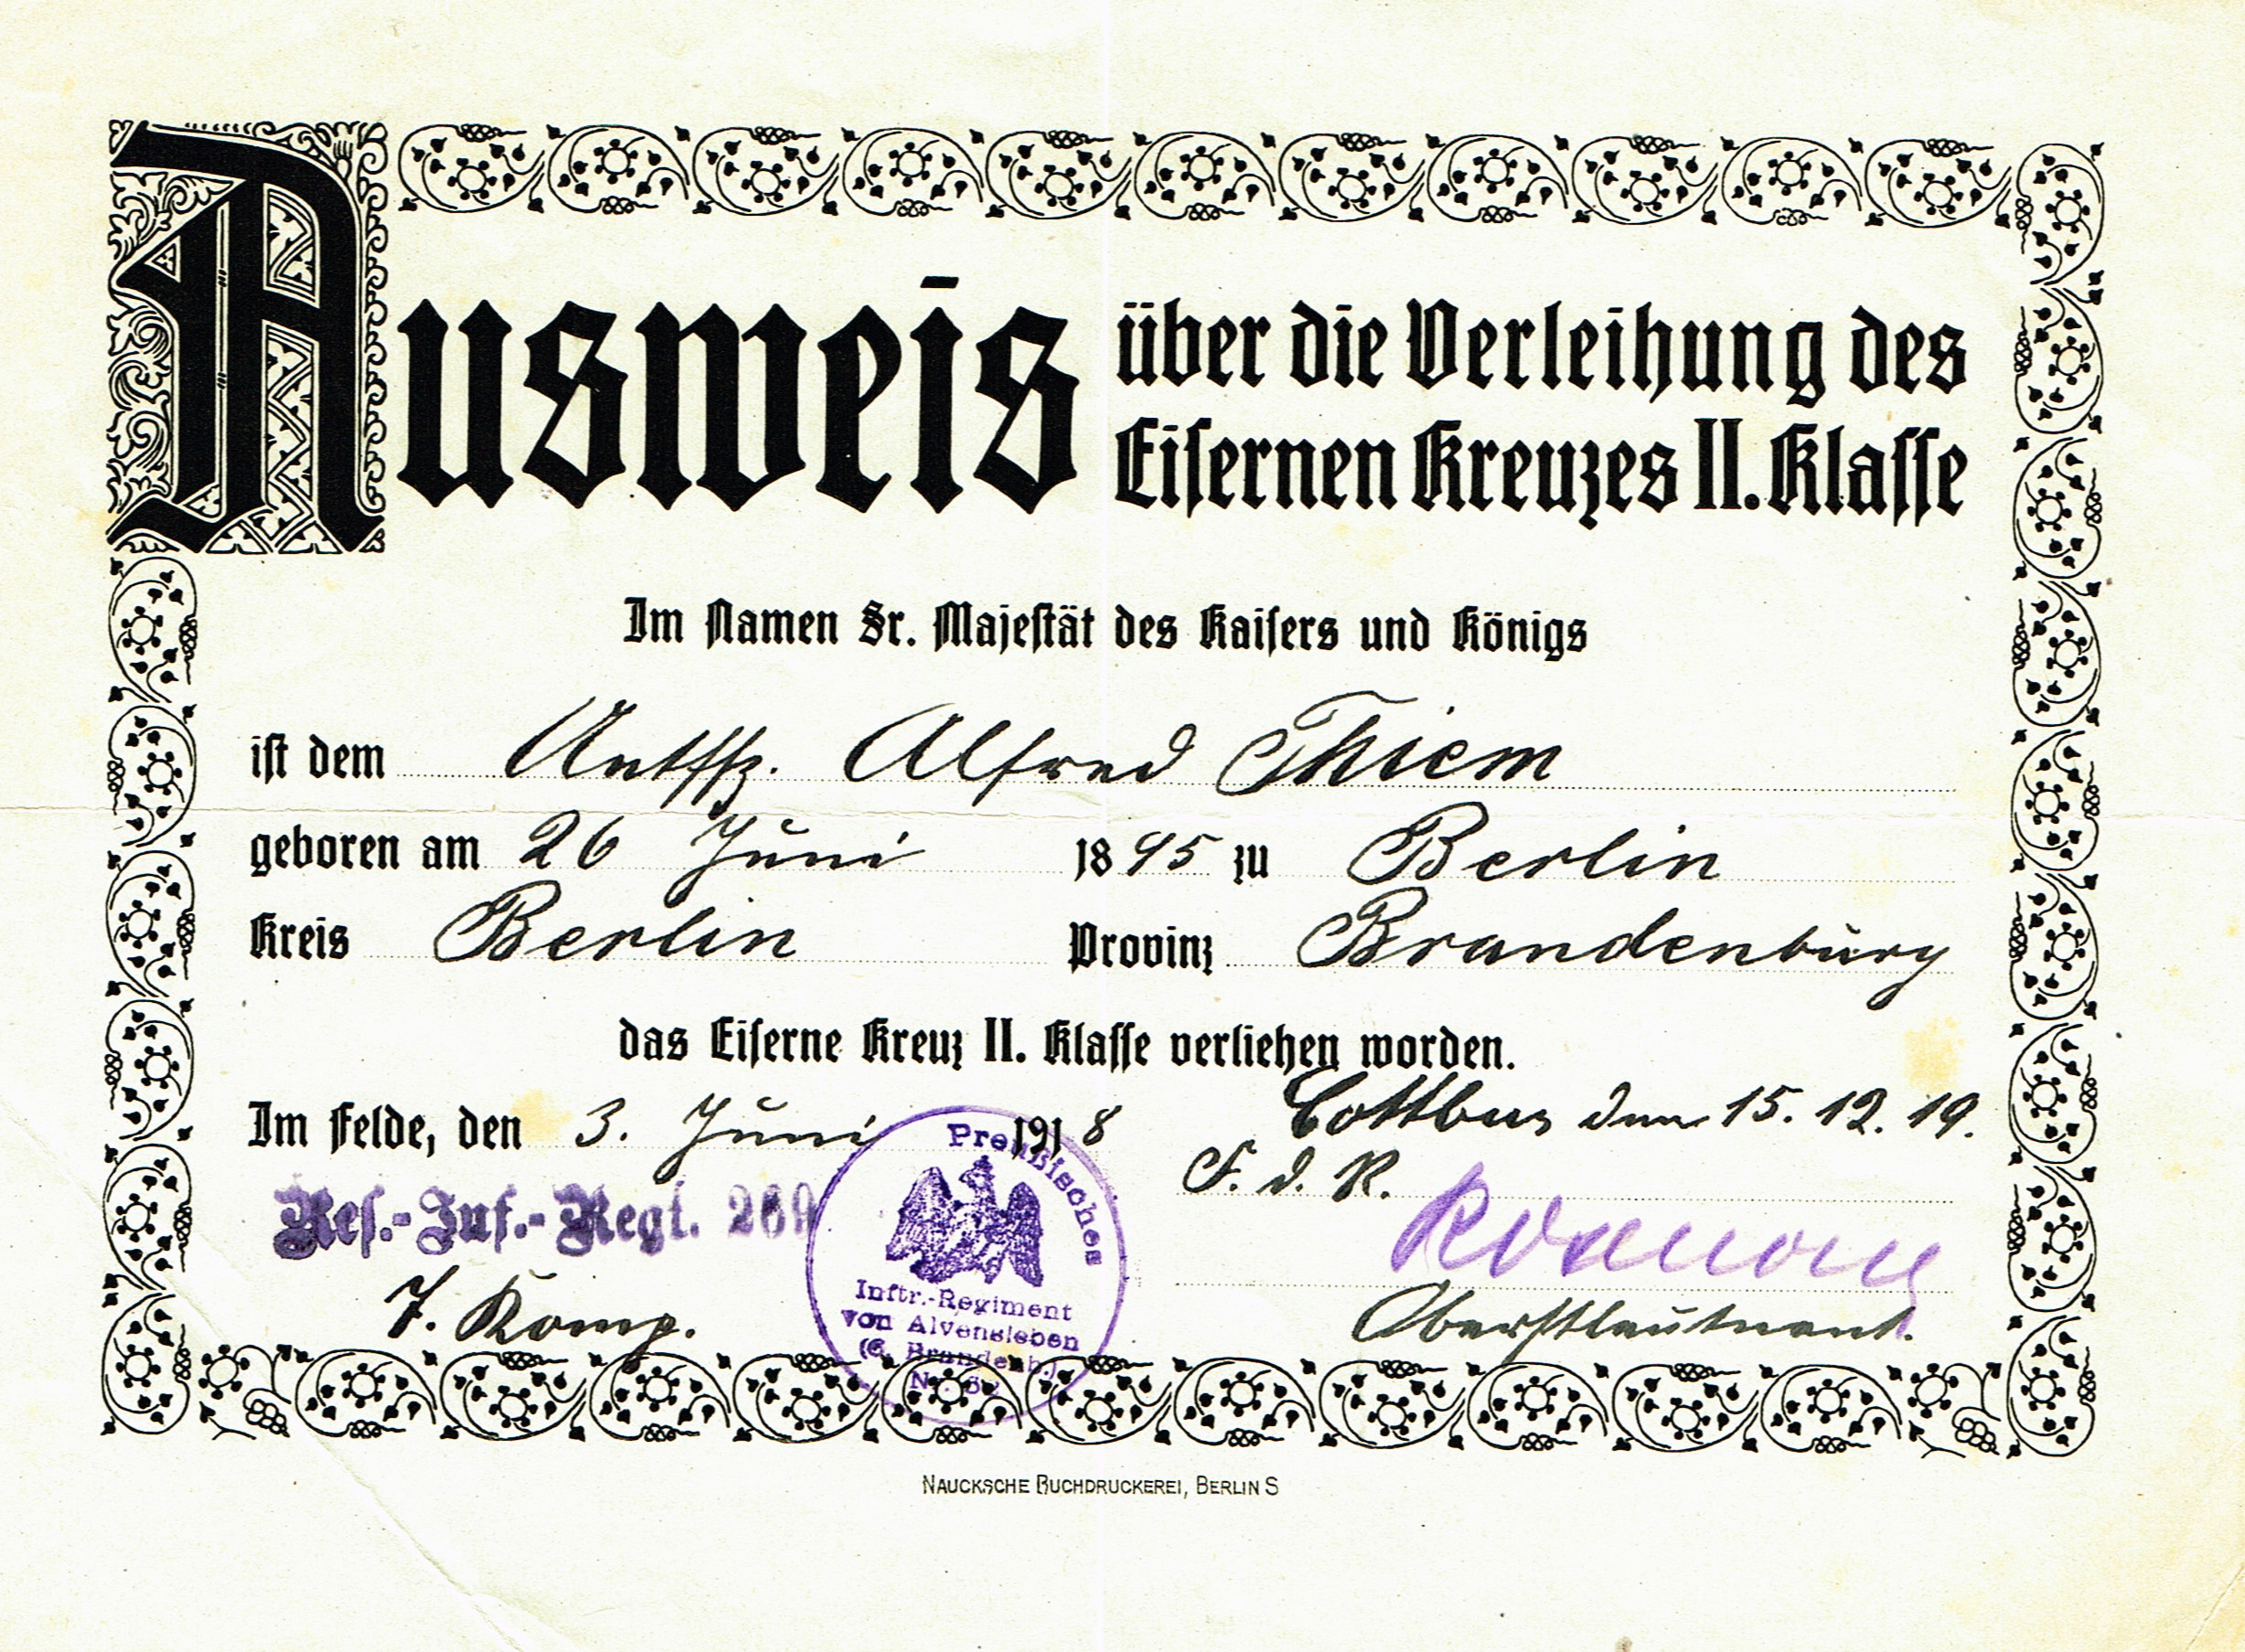 Ausweis über die Verleihung des
Eisernen Kreuzes II. Klasse
Im Namen Sr. Majestät des Kaisers und Königs
ist dem Untffz. Alfred Thiem
geboren am 26 Juni 1895 zu Berlin
Kreis Berlin Provinz Brandenburg
das Eiserne Kreuz II. Klasse verliehen worden.
Im Felde, den 3. Juni 1918
Cottbus den 15. 12. 19.
F. d. R.
Res.-Inf.-Regt. 269
7. Komp.
Preußisches
Inftr.-Regiment
von Alvensleben
(6. Brandenb.)
Nr. 52
Oberstleutnant.
NAUCKSCHE BUCHDRUCKEREI, BERLIN S